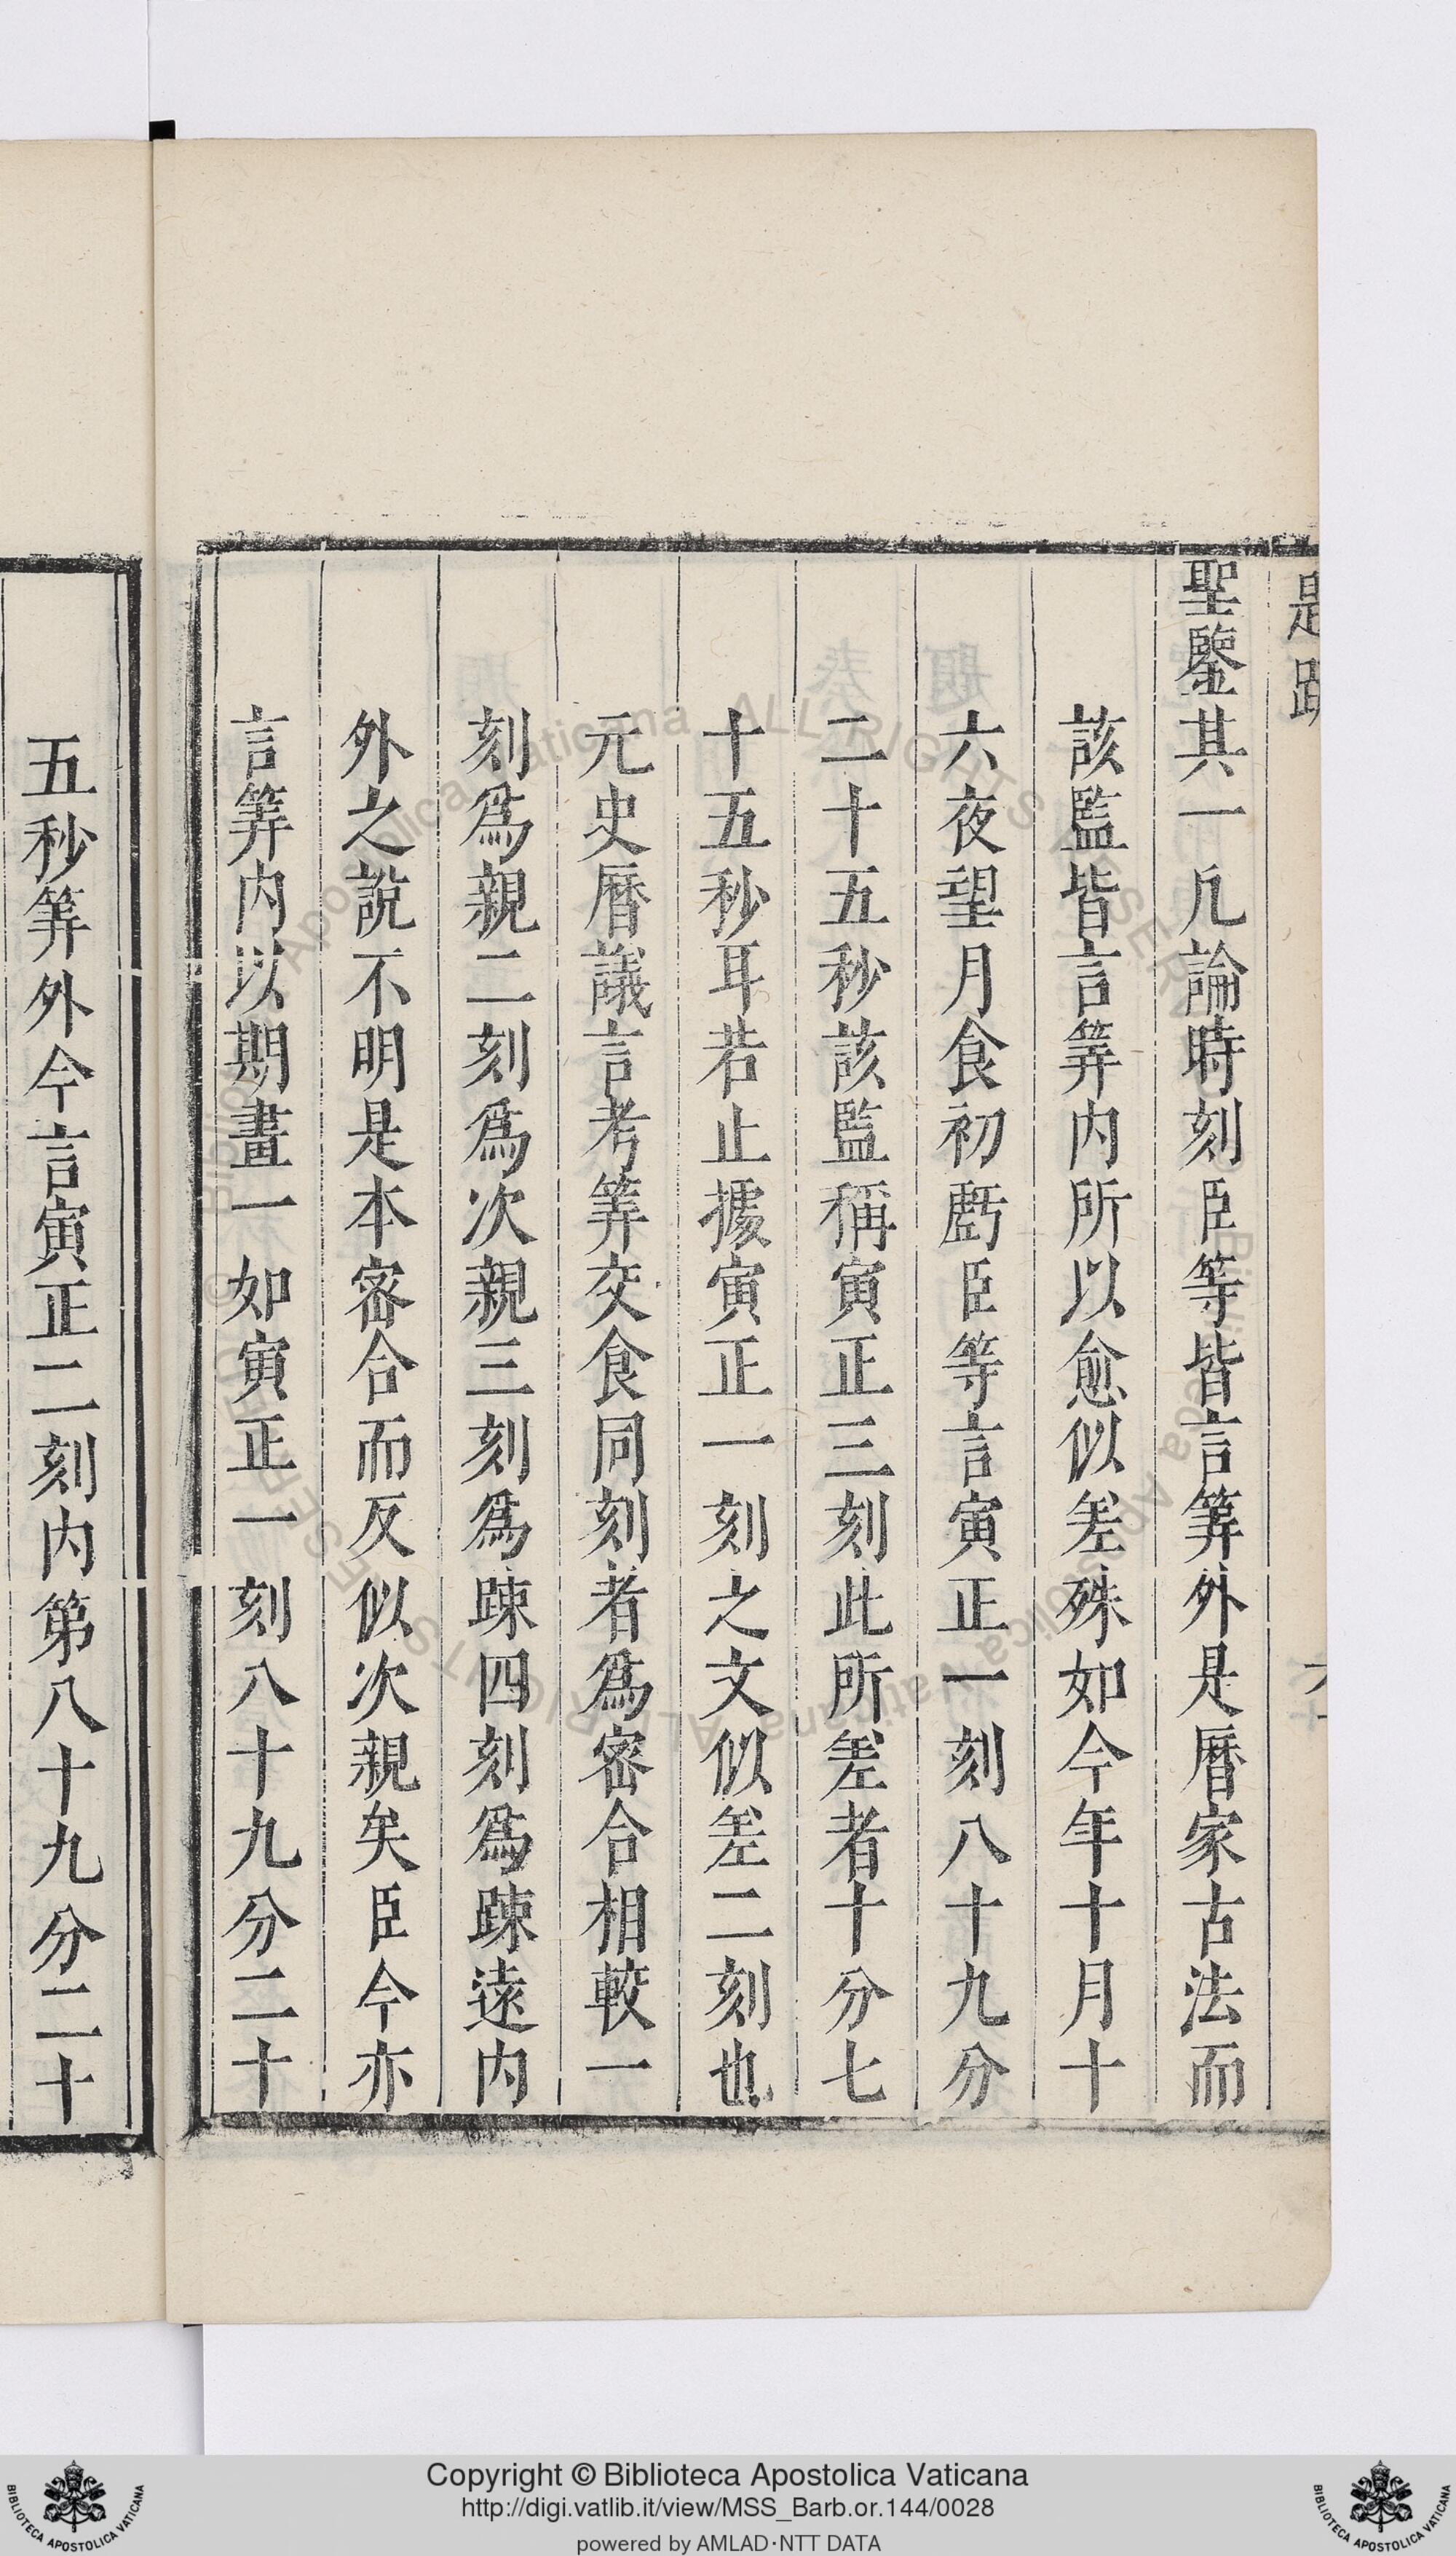 聖鑒其一凡論時刻臣等皆言筭外是曆家古法而
該監皆言筭内所以愈似差殊如今年十月十
六夜望月食初虧臣等言寅正一刻八十九分
二十五秒該監稱寅正三刻此所差者十分七
十五秒耳若止據寅正一刻之文似差二刻也
元史曆議言考筭交食同刻者爲密合相較一
刻爲親二刻爲次親三刻爲疎四刻爲疎遠内
外之說不明是本密合而反似次親矣臣今亦
言筭内以期畫一如寅正一刻八十九分二十
五秒筭外今言寅正二刻内第八十九分二十
Copyright © Biblioteca Apostolica Vaticana
http://digi.vatlib.it/view/MSS_Barb.or.144/0028
powered by AMLAD·NTT DATA
BIBLIOTECA APOSTOLICA VATICANA
BIBLIOTECA APOSTOLICA VATICANA